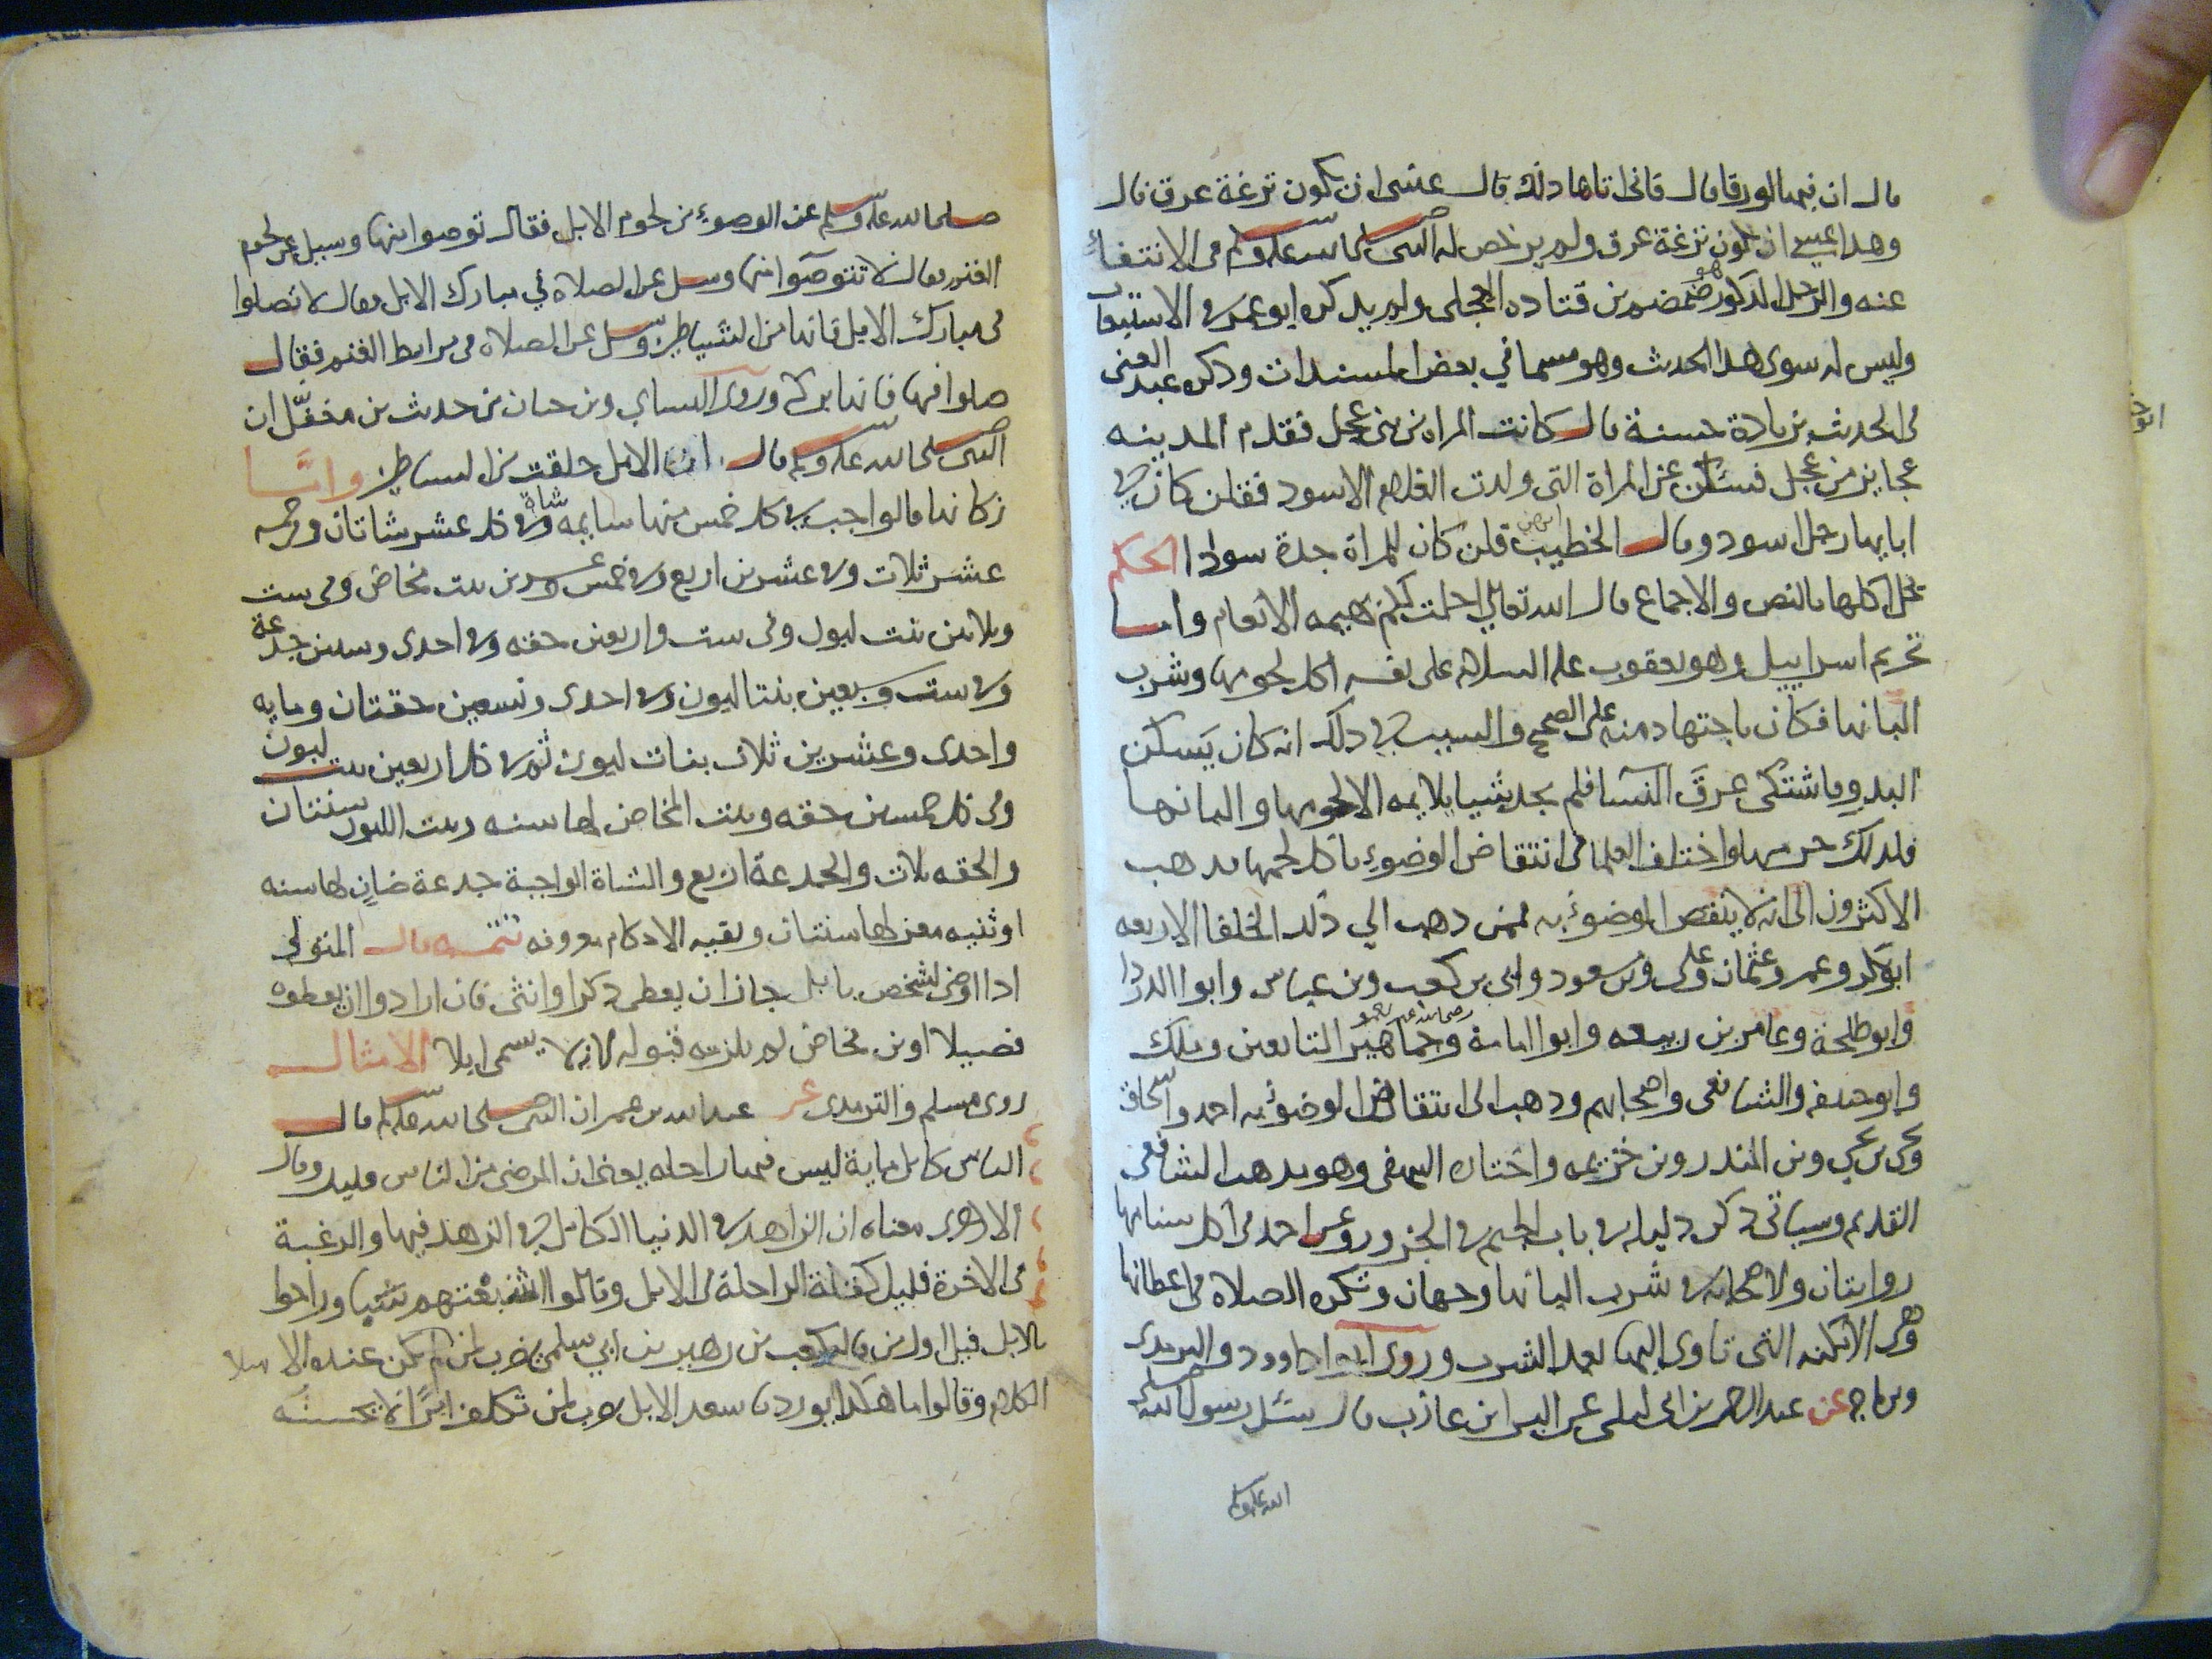 قال ان فيها لورقا قال فانى اتاها ذلك قال عسى ان يكون نزعة عرق قال
وهذا عسى ان يكون نزعة عرق ولم يرخص له النبى صلى الله عليه وسلم فى الانتفاء
عنه والرجل المذكور هو ضمضم بن قتادة العجلى ولم يذكره ابو عمر فى الاستيعاب
وليس له سوى هذا الحديث وهو مسما في بعض المسندات وذكره عبد الغنى
فى الحديث بزيادة حسنة قال كانت المراه من بنى عجل فقدم المدينه
عجايز من عجل فسئلن عن المراة التى ولدت الغلام الاسود فقلن كان فى
ابايها رجل اسود وقال الخطيب انهن قلن كان للمراة جدة سودا الحكم
يحل اكلها بالنص والاجماع قال الله تعالى احلت لكم بهيمه الانعام واما
تحريم اسراييل وهو يعقوب عليه السلام على نفسه اكل لحومها وشرب
البانها فكان باجتهاد منه على الصحيح والسبب فى ذلك انه كان يَسكن
البدو فاشتكى عرقَ النسا فلم يجد شيا يلايمه الا لحومها والبانها
فلذلك حرمها واختلف العلما فى انتقاض الوضوءِ باكل لحمها فذهب
الاكثرون الى انه لا ينقض الوضوءُ به فممن ذهب الي ذلك الخلفا الاربعه
ابوبكر وعمر وعثمان وعلى وبن مسعود وابى بن كعب وبن عباس وابوا الدردا
وابو طلحة وعامر بن ربيعه وابوا امامة رضى الله عنهم وجماهير التابعين ومالك
وابو حنيفه والشافعى واصحابهم وذهب الى انتقاض الوضوءُ به احمد واسحاق
ويحيى بن يحيي وبن المنذر وبن خزيمه واختاره البيهقى وهو مذهب الشافعى
القديم وسياتى ذكر دليله فى باب الجيم فى الجزور وعن احمد فى اكل سنامها
روايتان ولاصحابه فى شرب البانها وجهان وتكره الصلاه فى اعطانها
وهى الامكنه التى تاوى اليها بعد الشرب وروى ابوا داوود والترمذى
وبن ماجه عن عبد الرحمن بن ابى ليلى عن البراء بن عازب قال سئل رسول الله صلى
الله عليه وسلم
صلى الله عليه وسلم عن الوضوءِ من لحوم الابل فقال توضوا منها وسيل عن لحوم
الغنم فقال لا تتوضوا منها وسيل عن الصلاة في مبارك الابل فقال لا تصلوا
فى مبارك الابل فانها من الشياطين وسيل عن الصلاه فى مرابط الغنم فقال
صلوا فيها فانها بركة وروى النساى وبن حبان من حديث بن مغفّل ان
النبى صلى الله عليه وسلم قال ان الابل خلقت من الشياطين واما
زكاتها فالواجب فى كل خمس منها سايمه شاة وفى كل عشر شاتان وفى خمسه
عشر ثلاث وفى عشرين اربع وفى خمس وعشرين بنت مخاض وفى ست
وثلاثين بنت لبون وفى ست واربعين حقه وفى احدى وستين جذعة
وفى ست وسبعين بنتا لبون وفى احدى وتسعين حقتان ومايه
واحدى وعشرين ثلاث بنات لبون ثم فى كل اربعين بنت لبون
وفى كل خمسين حقه وبنت المخاض لها سنه وبنت اللبون سنتان
والحقه ثلاث والجذعة اربع والشاة الواجبة جذعة ضان لها سنه
او ثنيه معز لها سنتان وبقيه الاحكام معروفه تتمه قال المتولى
اذا اوصى لشخص بابل جاز ان يعطى ذكرا وانثى فان ارادوا ان يعطوه
فصيلا او بن مخاض لم يلزمه قبوله لانه لا يسمى ابلا الامثال
روى مسلم والترمذى عن عبد الله بن عمر ان النبى صلى الله عليه وسلم قال
الناس كابل ماية ليس فيها راحله يعنى ان المرضى من الناس قليل وقال
الازهرى معناه ان الزاهد فى الدنيا الكامل فى الزهد فيها والرغبة
فى الاخرة قليل كقلة الراحلة فى الابل وقالوا اشبعتهم شتما وراحوا
بالابل قيل اول من قاله كعب بن زهير بن ابي سلمى يضرب لمن لم يكن عنده الا
الكلام وقالوا ما هكذا يورد يا سعد الابل يضرب لمن تكلف امرًا لا يحسنُه